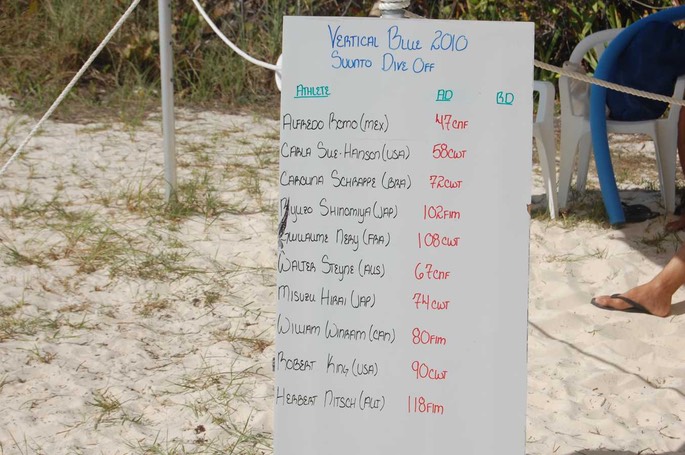 Vertical Blue 2010
Suunto Dive Off
Athlete AD RD
Alfredo Romo (MEX) 47 CNF
Carla Sue-Hanson (USA) 58 CWT
Carolina Schrappe (BRA) 72 CWT
Ryuzo Shinomiya (JAP) 102 FIM
Guillaume Nery (FRA) 108 CWT
Walter Steyne (AUS) 67 CNF
Misuzu Hirai (JAP) 74 CWT
William Winram (CAN) 80 FIM
Robert King (USA) 90 CWT
Herbert Nitsch (AUT) 118 FIM